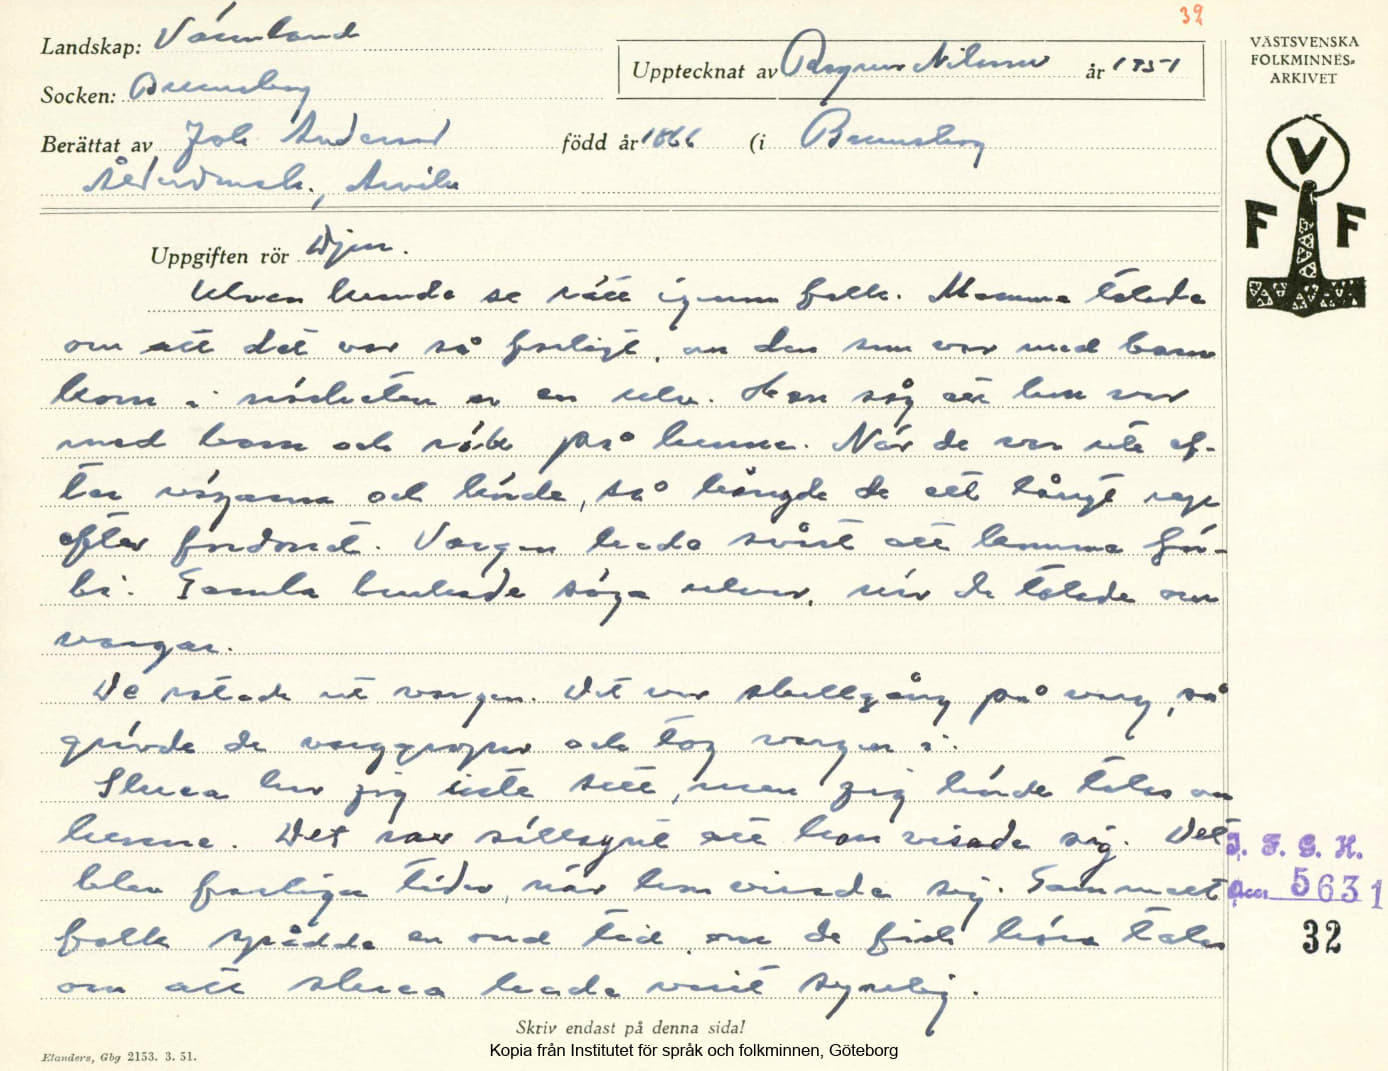 39
Landskap: Värmland
Upptecknat av Ragnar Nilsson år 1951
VÄSTSVENSKA
FOLKMINNES-
ARKIVET
Socken: Brunsberg
Berättat av Joh. Anderson född år 1866 (i Brunsberg
Ålderdomsh., Arvika
V F F
Uppgiften rör Djur.
Ulven kunde se rätt igenom folk. Mamma talade
om att det var så farligt, om den som var med barn
kom i närheten av en ulv. Han såg att hon var
med barn och råkte på henne. När de var ute ef-
ter vägarna och körde, så hängde de ett långt rep
efter fordonet. Vargen hade svårt att komma för-
bi. Gamla brukade säga ulver, när de talade om
vargar.
De rotade ut vargen. Det var skallgång på varg, så
grävde de varggropar och tog vargen i.
Slucca har jag inte sett, men jag hörde talas om
henne. Det var sällsynt att hon visade sig. Det
blev farliga tider, när hon visade sig. Gammalt
folk spådde en ond tid, om de fick höra talas
om att slucca hade varit synlig.
I. F. G. H.
Acc. 5631
32
Skriv endast på denna sida!
Elanders, Gbg 2153. 3. 51.
Kopia från Institutet för språk och folkminnen, Göteborg